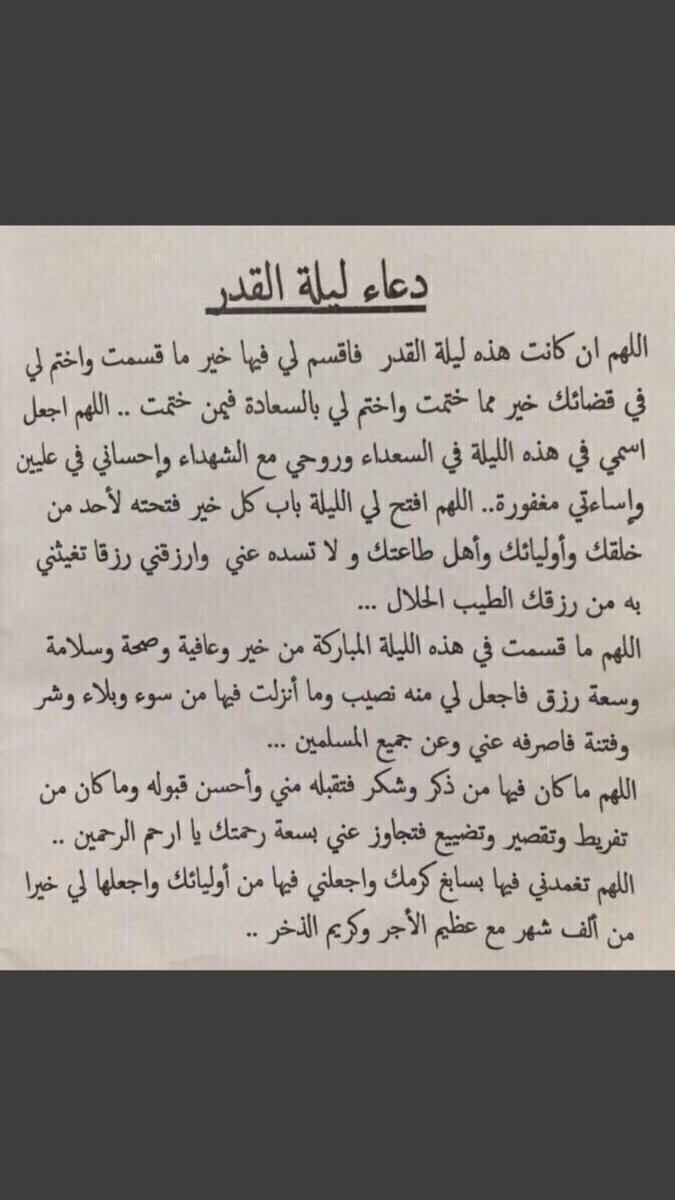 دعاء ليلة القدر
اللهم ان كانت هذه ليلة القدر فاقسم لي فيها خير ما قسمت واختم لي
في قضائك خير مما ختمت واختم لي بالسعادة فيمن ختمت .. اللهم اجعل
اسمي في هذه الليلة في السعداء وروحي مع الشهداء وإحساني في عليين
وإساءتي مغفورة.. اللهم افتح لي الليلة باب كل خير فتحته لأحد من
خلقك وأوليائك وأهل طاعتك و لا تسده عني وارزقني رزقا تغيثني
به من رزقك الطيب الحلال ...
اللهم ما قسمت في هذه الليلة المباركة من خير وعافية وصحة وسلامة
وسعة رزق فاجعل لي منه نصيب وما أنزلت فيها من سوء وبلاء وشر
وفتنة فاصرفه عني وعن جميع المسلمين ...
اللهم ماكان فيها من ذكر وشكر فتقبله مني وأحسن قبوله وماكان من
تفريط وتقصير وتضييع فتجاوز عني بسعة رحمتك يا ارحم الرحمين ..
اللهم تغمدني فيها بسابغ كرمك واجعلني فيها من أوليائك واجعلها لي خيرا
من ألف شهر مع عظيم الأجر وكريم الذخر ..